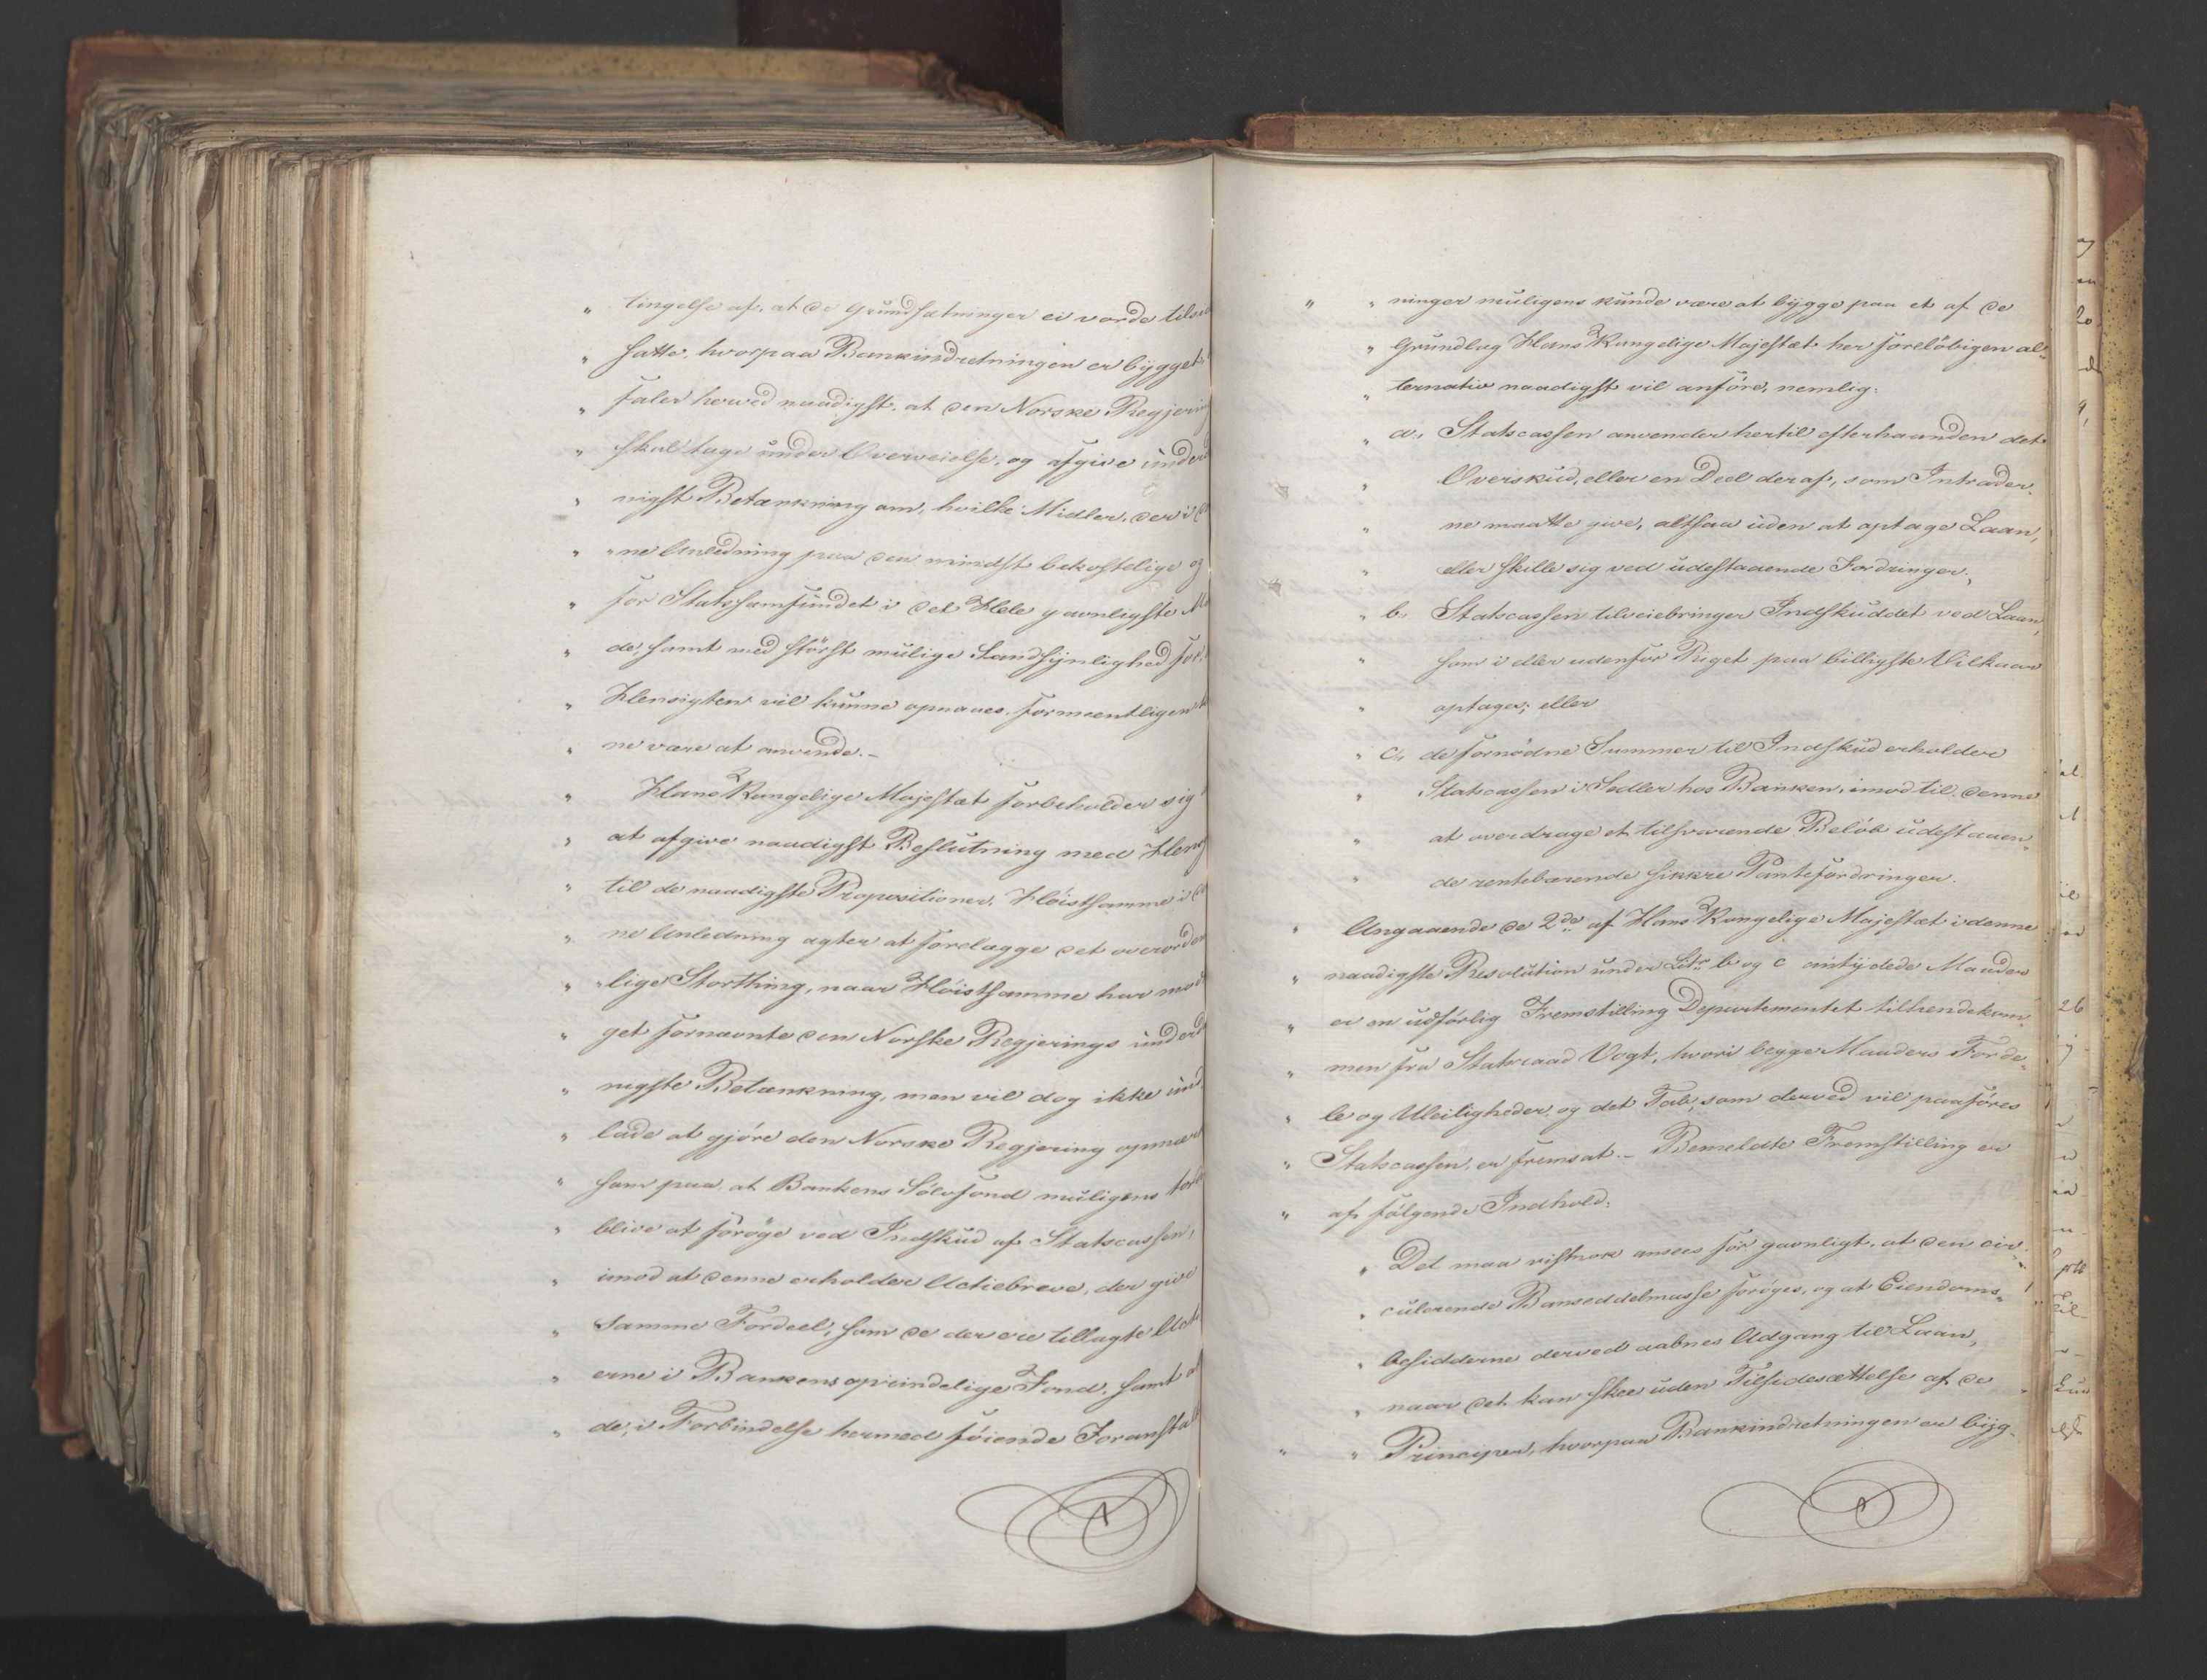 " tingelse af, at de Grundsætninger ei vorde tilsi
" satte, hvorpaa Bankindretningen er bygget
" faler herved naadigst, at den Norske Regjering
" skal tage under Overveielse, og afgive underd
" nigst Betænkning om, hvilke Midler, der i
" " ne Anledning paa den mindst bekostelige og
" for Statssamfundet i det Hele gavnligste Ma
" de, samt med störst mulige Sandsynlighed for,
" Hensigten vil kunne opnaaes, formeentligen
" ne være at anvende.-
" Hans Kongelige Majestæt forbeholder sig
" at afgive naadigst Beslutning med Hens
" til de naadigste Propositioner, Höistsamme i
" ne Anledning agter at forelægge det overorden
" " lige Storthing, naar Höistsamme har mod
" get fornævnte den Norske Regjerings underd
" nigste Betænkning, men vil dog ikke und
" lade at gjöre den Norske Regjering opmærk
" som paa, at Bankens Sölvfond muligens
" blive at foröge ved Indskud af Statscassen,
" imod at denne erholder Actiebreve, der give
" samme Fordeel, som de der ere tillagte Acti
" erne i Bankens oprindelige Fond, samt
" de, i Forbindelse hermed föiende Foranstalt
" " ninger muligens kunde være at bygge paa et af de
" Grundlag Hans Kongelige Majestæt her forelöbigen al"
" ternativ naadigst vil anföre, nemlig:
" a, Statscassen anvender hertil efterhaanden det
" Overskud, eller en Deel deraf, som Intrader"
" ne maatte give, altsaa uden at optage Laan,
" eller skille sig ved udestaaende Fordringer;
" b, Statscassen tilveiebringer Indskuddet ved Laan,
" som i eller udenfor Riget paa billigste Vilkaar
" optages; eller
" c, de fornödne Summer til Indskud erholder
" Statscassen i Sedler hos Banken, imod til denne
" at overdrage et tilsvarende Belöb udestaaen"
" de rentebærende sikkre Pantefordringer.
" Angaaende de 2de af Hans Kongelige Majestæt i denne
" naadigste Resolution under Litr b og c antydede Maader
" er en udförlig Fremstilling Departementet tilhendekom"
" men fra Statsraad Vogt, hvori begge Maaders Forde"
" le og Uleiligheder, og det Tab, som derved vil paaföres
" Statscassen, er fremsat.- Bemeldte Fremstilling er
" af fölgende Indhold:
" Det maa vistnok ansees for gavnligt, at den cir"
" culerende Bankseddelmasse foröges, og at Eiendoms"
" besidderne derved aabnes Adgang til Laan,
" naar det kan skee uden Tilsidesættelse af de
" " Principer, hvorpaa Bankindretningen er byg"